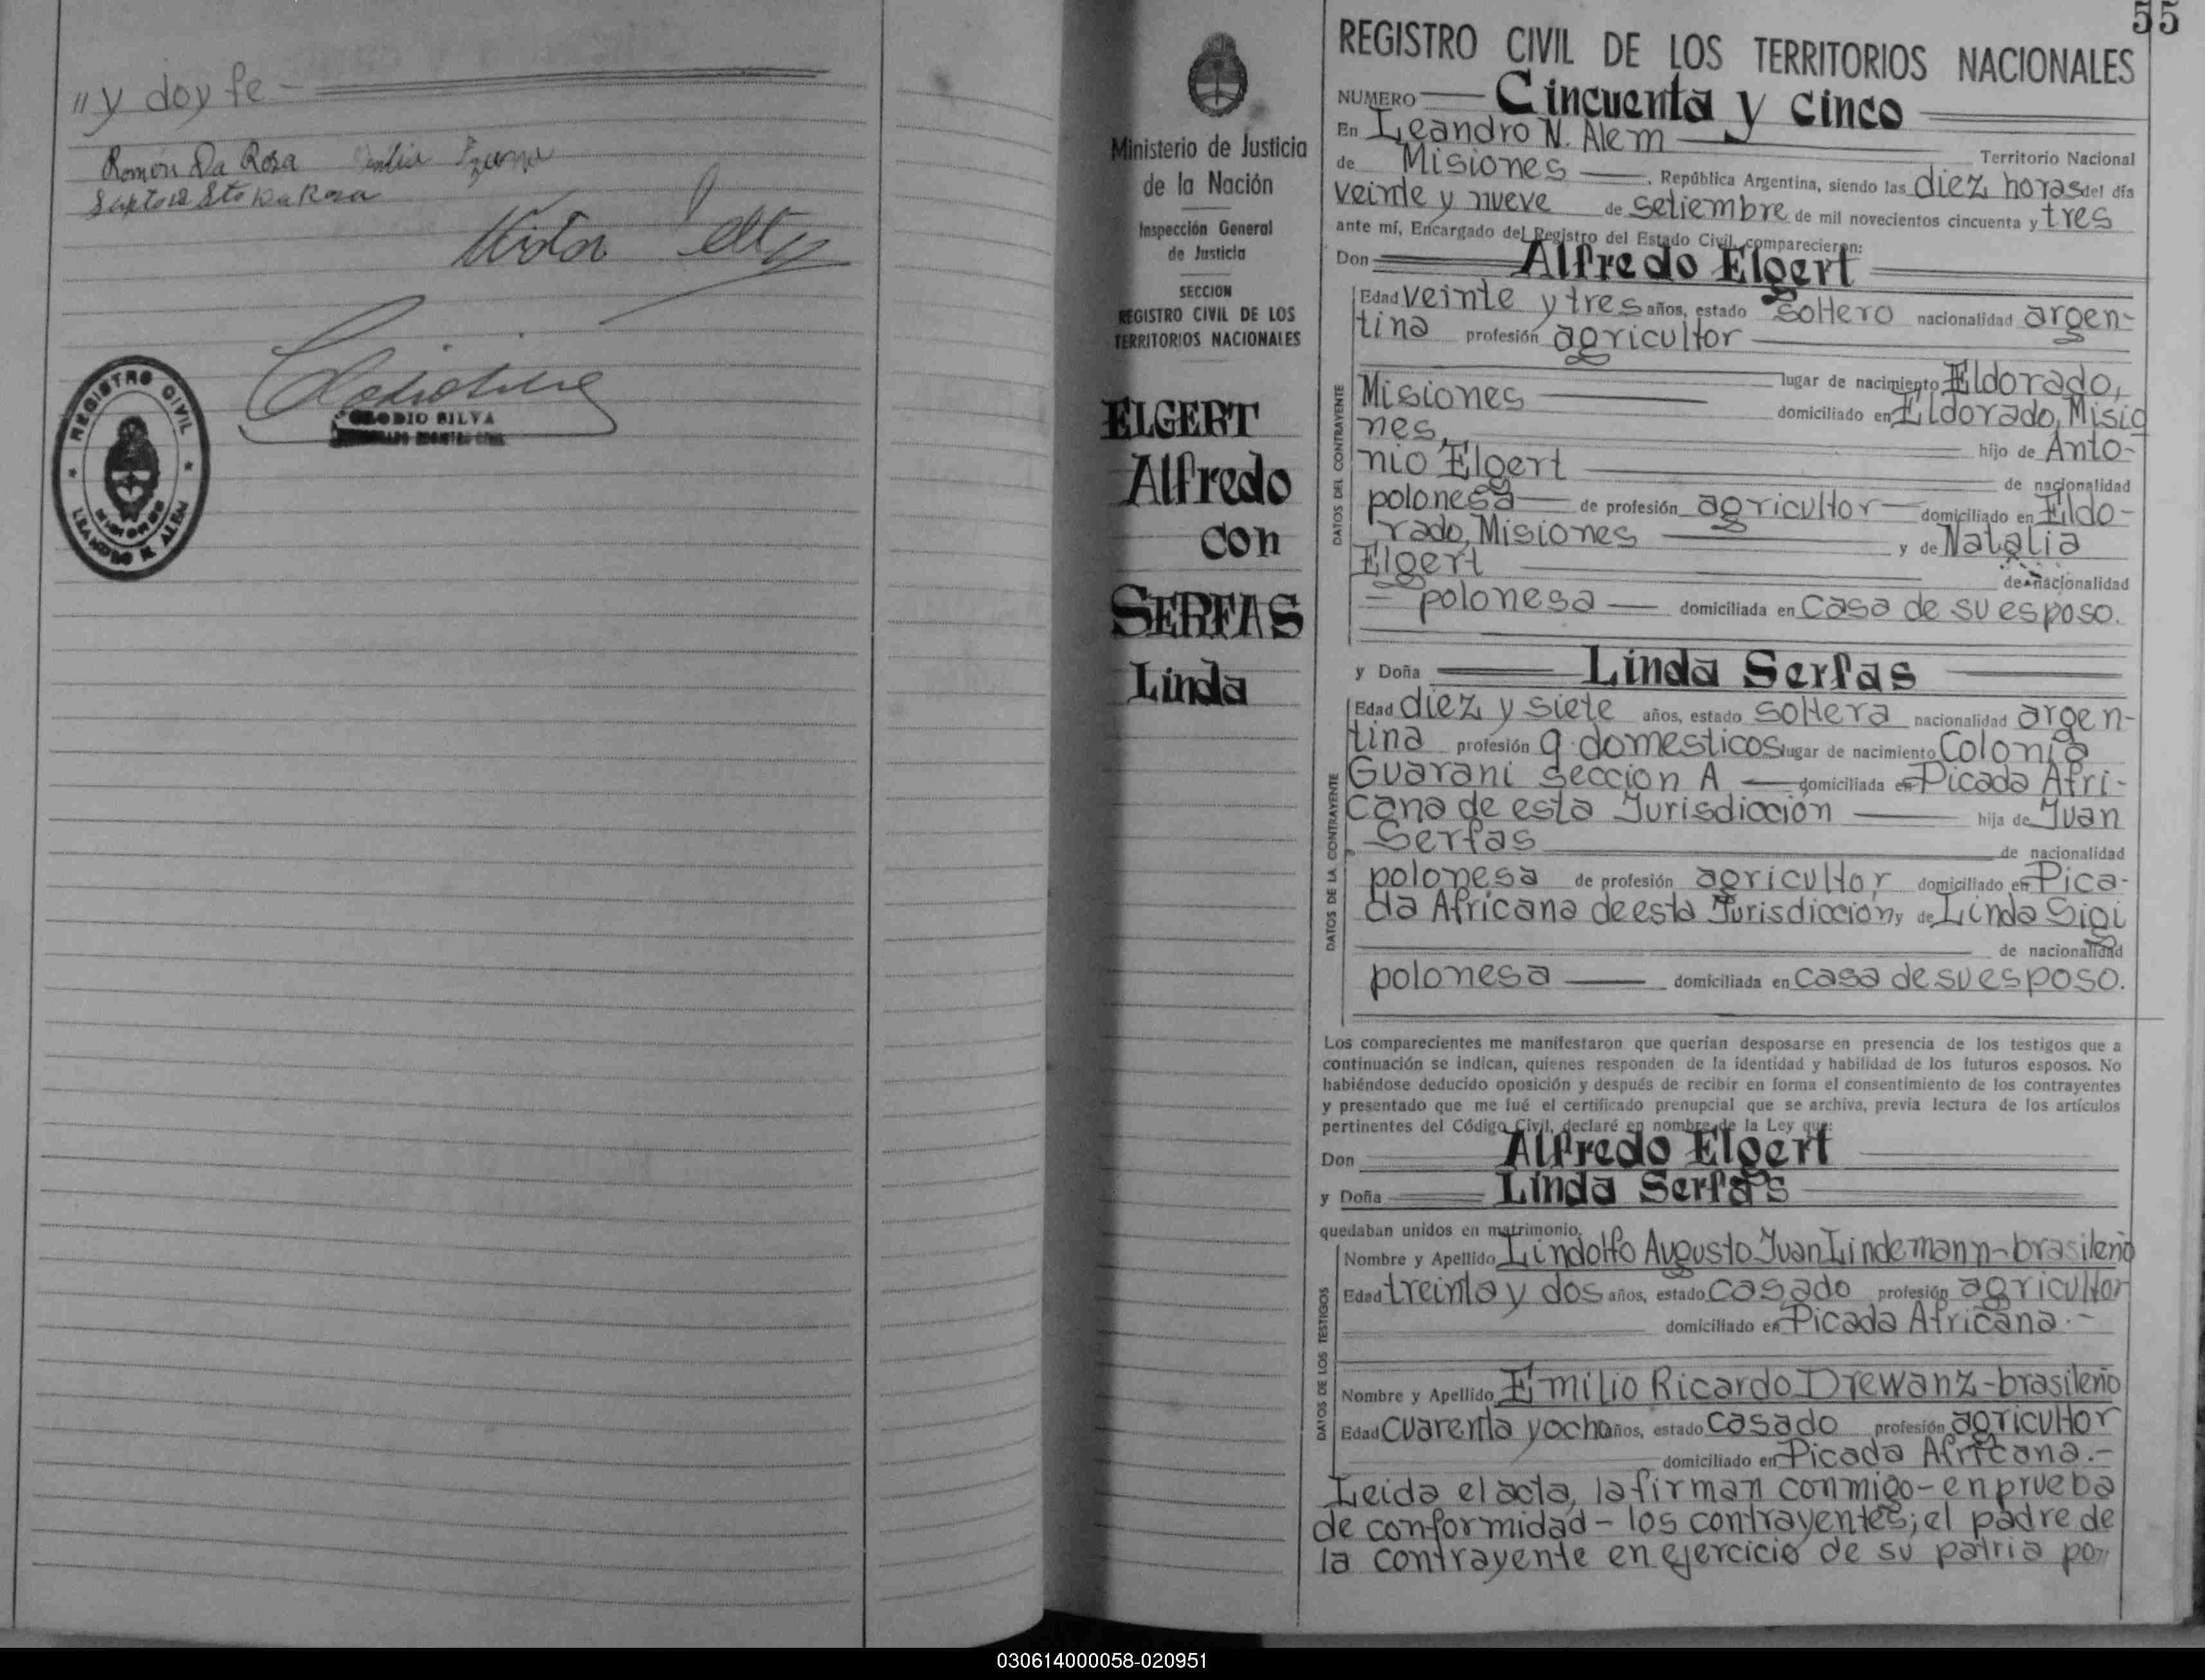 " y doy fe.-
Ramón Da Rosa
REGISTRO CIVIL
MISIONES
LEANDRO N. ALEM
CLODIO SILVA
ENCARGADO REGISTRO CIVIL
Ministerio de Justicia
de la Nación
Inspección General
de Justicia
SECCION
REGISTRO CIVIL DE LOS
TERRITORIOS NACIONALES
ELGERT
Alfredo
con
SERFAS
Linda
55
REGISTRO CIVIL DE LOS TERRITORIOS NACIONALES
NUMERO Cincuenta y cinco
En Leandro N. Alem
Territorio Nacional
de Misiones, República Argentina, siendo las diez horas del día
veinte y nueve de setiembre de mil novecientos cincuenta y tres
ante mí, Encargado del Registro del Estado Civil, comparecieron:
Don Alfredo Elgert
DATOS DEL CONTRAYENTE
Edad veinte y tres años, estado soltero nacionalidad argen-
tina profesión agricultor
lugar de nacimiento Eldorado,
Misiones domiciliado en Eldorado, Misio
nes, hijo de Anto-
nio Elgert de nacionalidad
polonesa de profesión agricultor domiciliado en Eldo-
rado, Misiones y de Natalia
Elgert de nacionalidad
polonesa domiciliada en casa de su esposo.
y Doña Linda Serfas
DATOS DE LA CONTRAYENTE
Edad diez y siete años, estado soltera nacionalidad argen-
tina profesión q. domesticos lugar de nacimiento Colonia
Guarani seccion A domiciliada en Picada Afri-
cana de esta Jurisdicción hija de Juan
Serfas de nacionalidad
polonesa de profesión agricultor domiciliado en Pica-
da Africana de esta Jurisdicción y de Linda Sigi
de nacionalidad
polonesa domiciliada en casa de su esposo.
Los comparecientes me manifestaron que querían desposarse en presencia de los testigos que a
continuación se indican, quienes responden de la identidad y habilidad de los futuros esposos. No
habiéndose deducido oposición y después de recibir en forma el consentimiento de los contrayentes
y presentado que me fué el certificado prenupcial que se archiva, previa lectura de los artículos
pertinentes del Código Civil, declaré en nombre de la Ley que:
Don Alfredo Elgert
y Doña Linda Serfas
quedaban unidos en matrimonio.
DATOS DE LOS TESTIGOS
Nombre y Apellido Lindolfo Augusto Juan Lindemann-brasileño
Edad treinta y dos años, estado casado profesión agricultor
domiciliado en Picada Africana.-
Nombre y Apellido Emilio Ricardo Drewanz-brasileño
Edad cuarenta y ocho años, estado casado profesión agricultor
domiciliado en Picada Africana.-
Leida el acta, la firman conmigo-en prueba
de conformidad-los contrayentes; el padre de
la contrayente en ejercicio de su patria po"
030614000058-020951